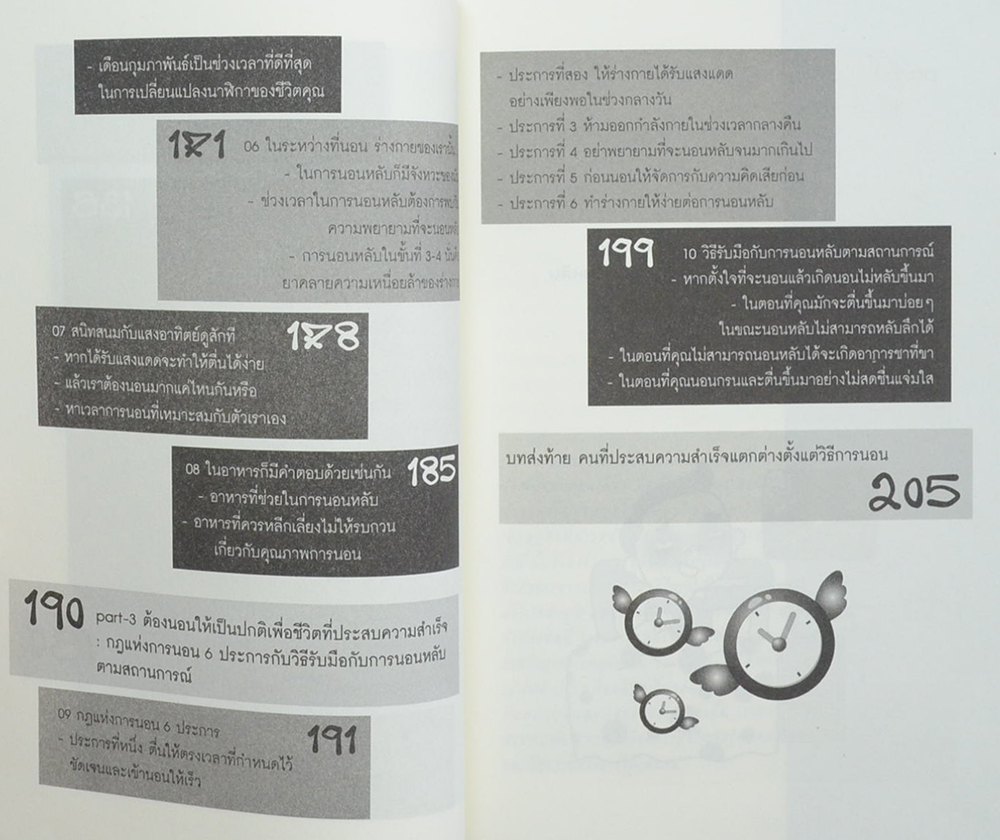 - เดือนกุมภาพันธ์เป็นช่วงเวลาที่ดีที่สุด
ในการเปลี่ยนแปลงนาฬิกาของชีวิตคุณ
171 06 ในระหว่างที่นอน ร่างกายของเรานั้น
- ในการนอนหลับก็มีจังหวะของมัน
- ช่วงเวลาในการนอนหลับต้องการ
ความพยายามที่จะนอน
- การนอนหลับในขั้นที่ 3-4 นั้น
ยาคลายความเหนื่อยล้าของ
07 สนิทสนมกับแสงอาทิตย์ดูสักที 178
- หากได้รับแสงแดดจะทำให้ตื่นได้ง่าย
- แล้วเราต้องนอนมากแค่ไหนกันหรือ
- หาเวลาการนอนที่เหมาะสมกับตัวเราเอง
08 ในอาหารก็มีคำตอบด้วยเช่นกัน 185
- อาหารที่ช่วยในการนอนหลับ
- อาหารที่ควรหลีกเลี่ยงไม่ให้รบกวน
เกี่ยวกับคุณภาพการนอน
190 part-3 ต้องนอนให้เป็นปกติเพื่อชีวิตที่ประสบความสำเร็จ
: กฎแห่งการนอน 6 ประการกับวิธีรับมือกับการนอนหลับ
ตามสถานการณ์
09 กฎแห่งการนอน 6 ประการ 191
- ประการที่หนึ่ง ตื่นให้ตรงเวลาที่กำหนดไว้
ชัดเจนและเข้านอนให้เร็ว
- ประการที่สอง ให้ร่างกายได้รับแสงแดด
อย่างเพียงพอในช่วงกลางวัน
- ประการที่ 3 ห้ามออกกำลังกายในช่วงเวลากลางคืน
- ประการที่ 4 อย่าพยายามที่จะนอนหลับจนมากเกินไป
- ประการที่ 5 ก่อนนอนให้จัดการกับความคิดเสียก่อน
- ประการที่ 6 ทำร่างกายให้ง่ายต่อการนอนหลับ
199 10 วิธีรับมือกับการนอนหลับตามสถานการณ์
- หากตั้งใจที่จะนอนแล้วเกิดนอนไม่หลับขึ้นมา
- ในตอนที่คุณมักจะตื่นขึ้นมาบ่อยๆ
ในขณะนอนหลับไม่สามารถหลับลึกได้
- ในตอนที่คุณไม่สามารถนอนหลับได้จะเกิดอาการชาที่ขา
- ในตอนที่คุณนอนกรนและตื่นขึ้นมาอย่างไม่สดชื่นแจ่มใส
บทส่งท้าย คนที่ประสบความสำเร็จแตกต่างตั้งแต่วิธีการนอน
205